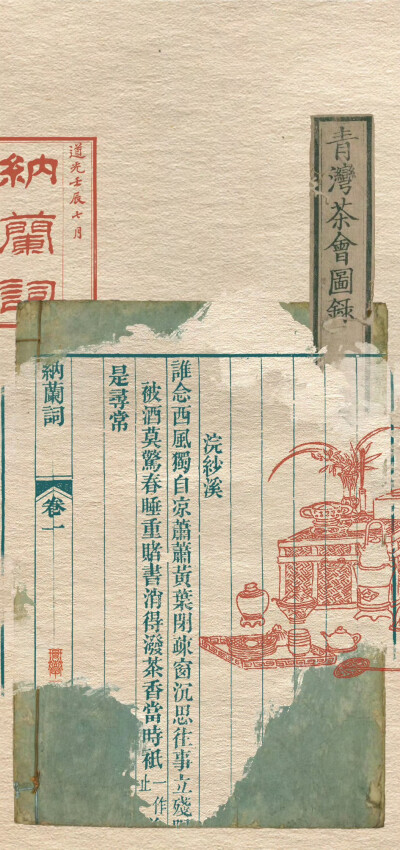 青灣茶會圖錄
浣紗溪
誰念西風獨自凉蕭蕭黃葉閉疎窗沉思往事立殘
被酒莫驚春睡重賭書消得潑茶香當時祇
一作
止
是尋常
納蘭詞
卷一
道光壬辰七月
納蘭詞